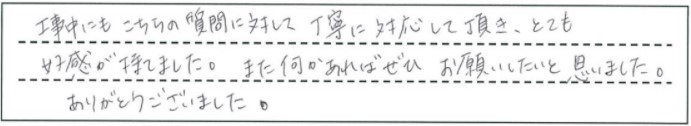 工事中にもこちらの質問に対して丁寧に対応して頂き、とても
好感が持てました。また何かあればぜひお願いしたいと思いました。
ありがとうございました。